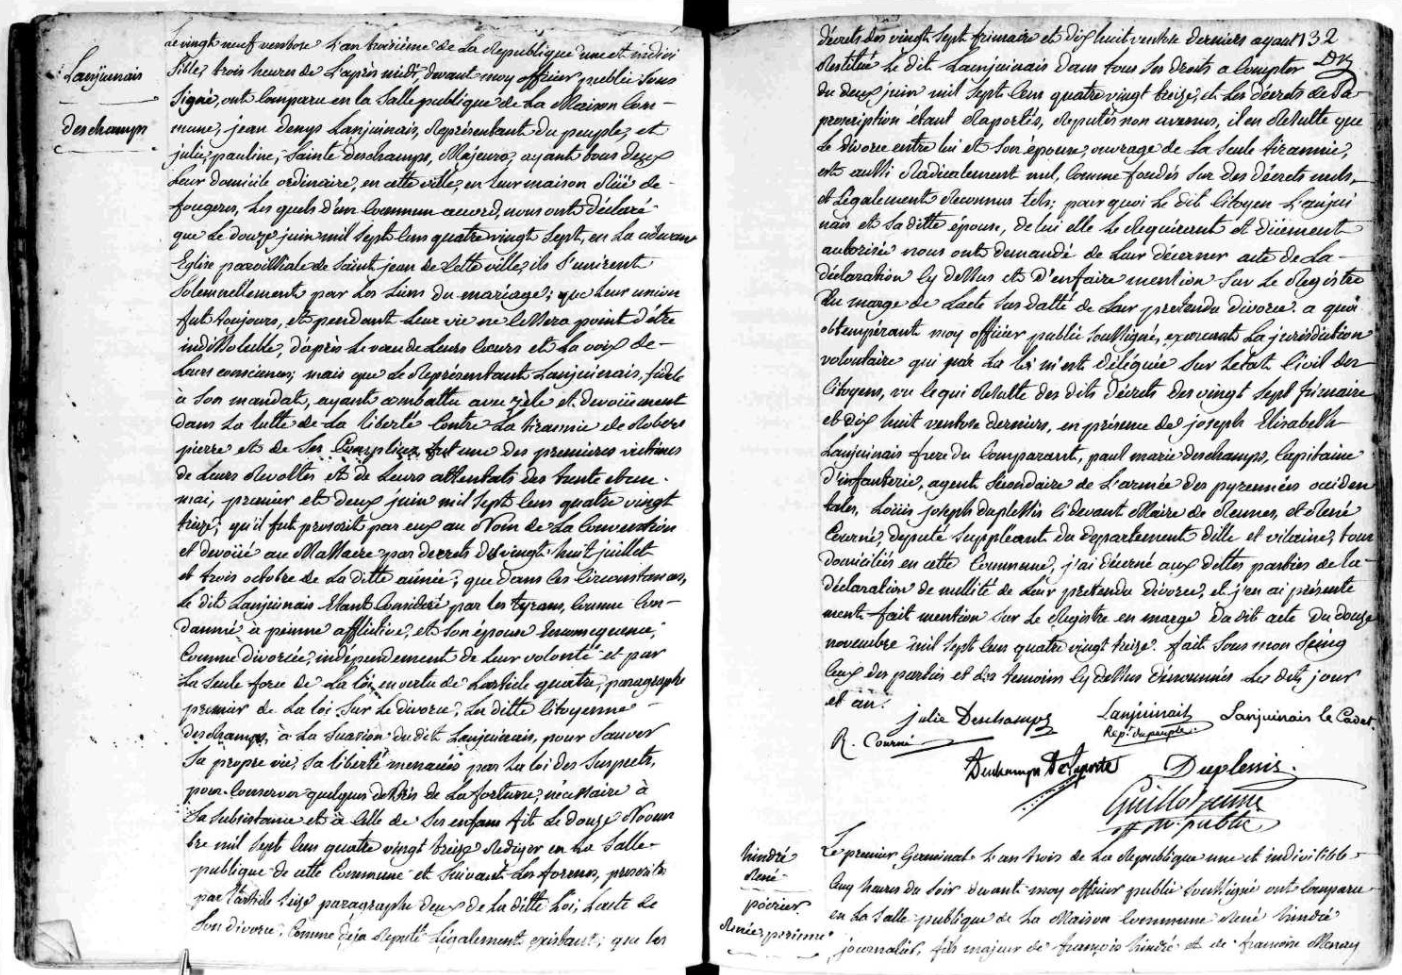 Lanjuinais
deschamps
Le vingt neuf ventose L'an troisième de La Republique une et indivi
sible, trois heures de L'après midi, devant moy officier public sous
signé, ont Comparu en la Salle publique de La Maison Com-
mune, jean denys Lanjuinais, Représentant du peuple, et
julie, pauline, Sainte deschamps, Majeurs, ayant tous deux
Leur domicile ordinaire, en cette ville, en leur maison Rüe de-
fougeres, Les quels d'un Commun accord, nous ont déclaré
que Le douze juin mil Sept Cens quatre vingt Sept, en La cidevant
Eglise paroissiale de Saint jean de Cette ville, ils S'unirent
Solemnellement par Les Liens du mariage; que Leur union
fut toujours, et pendant Leur vie ne Cessera point d'étre
indissoluble, d'après Le voeu de Leurs Coeurs et La voix de-
Leurs consciences; mais que Le Représentant Lanjuinais, fidele
à Son mandat, ayant combattu avec zèle et devoüement
dans La Lutte de La liberté Contre La tirannie de Robes
pierre et de Ses Complices, fut une des premieres victimes
de Leurs Revoltes et de Leurs attentats des trente et un-
mai, premier et deux juin mil Sept Cens quatre vingt
treize; qu'il fut proscrit par eux au Nom de La Convention
et devoüé au Massacre par decrets des vingt huit juillet
et trois octobre de La ditte année; que dans Ces Circonstances,
Le dit Lanjuinais Etant Consideré par Les tyrans, Comme Con-
damné à peinne afflictive, et Son épouse En consequence,
Comme divorcée, indépendement de Leur volonté et par
La Seule force de La loi, en vertu de L'article quatre, paragraphe
premier de La loi Sur Le divorce, La ditte Citoyenne-
deschamps, à La Suasion du dit Lanjuinais, pour Sauver
Sa propre vie, Sa liberté menacées par La loi des Suspects,
pour Conserver quelques débris de La fortune, nécessaire à
La Subsistance et à Celle de Ses enfans fit Le douze Novem
bre mil Sept Cens quatre vingt treize Rediger en La Salle-
publique de cette Commune et Suivant Les formes, prescrites
par l'article Seize paragraphe deux de La ditte Loi, L'acte de
Son divorce, Comme déja Reputé Légalement existant; que Les
décrets des vingt Sept frimaire et dix huit ventose derniers ayant 132
Restitué Le dit Lanjuinais dans tous Ses droits a Compter
du deux juin mil Sept Cens quatre vingt treize, et Les décrets de sa-
proscription étant Raportés, Reputés non avenus, il en Resulte que
Le divorce entre lui et Son épouse, ouvrage de La Seule tirannie,
est aussi Radicalement nul, Comme fondé Sur des décrets nuls,
et Légalement Reconnus tels; pour quoi Le dit Citoyen Lanjui
nais et Sa ditte épouse, de lui elle Le Requérant et düement
autorisée nous ont demandé de Leur décerner acte de La-
déclaration Cy dessus et D'en faire mention Sur Le Registre
En marge de L'acte Sus datté de Leur pretendu divorce. a quoi
obtempérant moy officier public Soussigné, exercant La jurisdiction
volontaire qui par La loi m'est déléguée Sur L'état Civil des
Citoyens, vu Ce qui Resulte des dits Décrets des vingt Sept frimaire
et dix huit ventose derniers, en présence de joseph Elisabeth
Lanjuinais frere du Comparant, paul marie deschamps, Capitaine
d'infanterie, agent Secondaire de L'armée des pyrennées occiden
tales, Loüis joseph duplessis Cidevant Maire de Rennes, et René
Courné, deputé Suppléant du Departement d'ille et vilaine, tous
domiciliés en cette Commune, j'ai décerné aux dittes parties de La-
déclaration de nullité de Leur pretendu divorce, et j'en ai présente
ment fait mention Sur Le Registre en marge du dit acte du douze
novembre mil Sept Cens quatre vingt treize. fait Sous mon Seing
Ceux des parties et des temoins Cy dessus Denommés Les dits jour
et an.
julie Deschamps Lanjuinais Lanjuinais Le Cadet
Rep. du peuple.
R. Courné
Deschamps Duplessis.
off. public
hindré
René
Le premier Germinal L'an trois de La Republique une et indivisible-
Cinq heures du Soir devant moy officier public Soussigné ont Comparu
en La Salle publique de La Maison Commune René hindré
journalier, fils majeur de françois hindré et de francoise